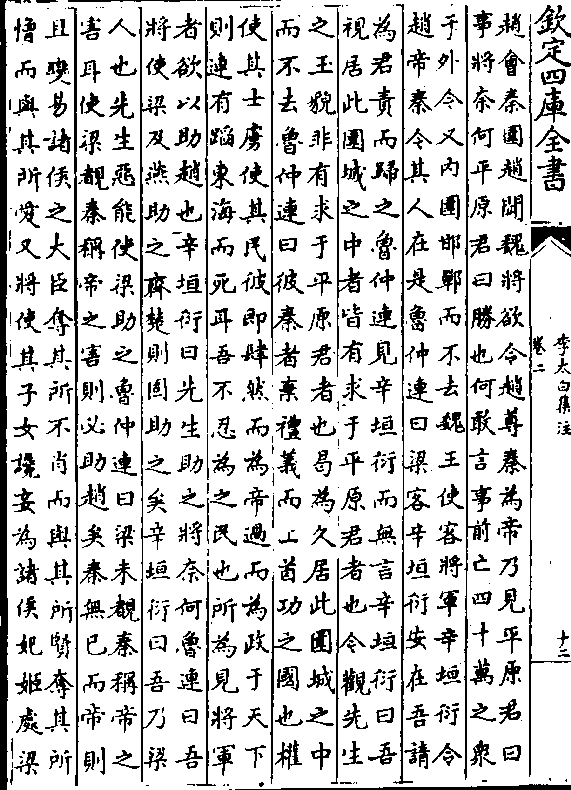 欽定四庫全書
李太白集注
卷二
十二
趙會秦圍趙聞魏將欲令趙尊秦為帝乃見平原君曰
事將奈何平原君曰勝也何敢言事前亡四十萬之衆
于外今又内圍邯鄲而不去魏王使客將軍辛垣衍令
趙帝秦今其人在是魯仲連曰梁客辛垣衍安在吾請
為君責而歸之魯仲連見辛垣衍而無言辛垣衍曰吾
視居此圍城之中者皆有求于平原君者也今觀先生
之玉貌非有求于平原君者也曷為久居此圍城之中
而不去魯仲連曰彼秦者棄禮義而上首功之國也權
使其士虜使其民彼即肆然而為帝過而為政于天下
則連有蹈東海而死耳吾不忍為之民也所為見將軍
者欲以助趙也辛垣衍曰先生助之將奈何魯連曰吾
將使梁及燕助之齊楚則固助之矣辛垣衍曰吾乃梁
人也先生惡能使梁助之魯仲連曰梁未覩秦稱帝之
害耳使梁覩秦稱帝之害則必助趙矣秦無已而帝則
且變易諸侯之大臣奪其所不肖而與其所賢奪其所
憎而與其所愛又將使其子女讒妾為諸侯妃姬處梁